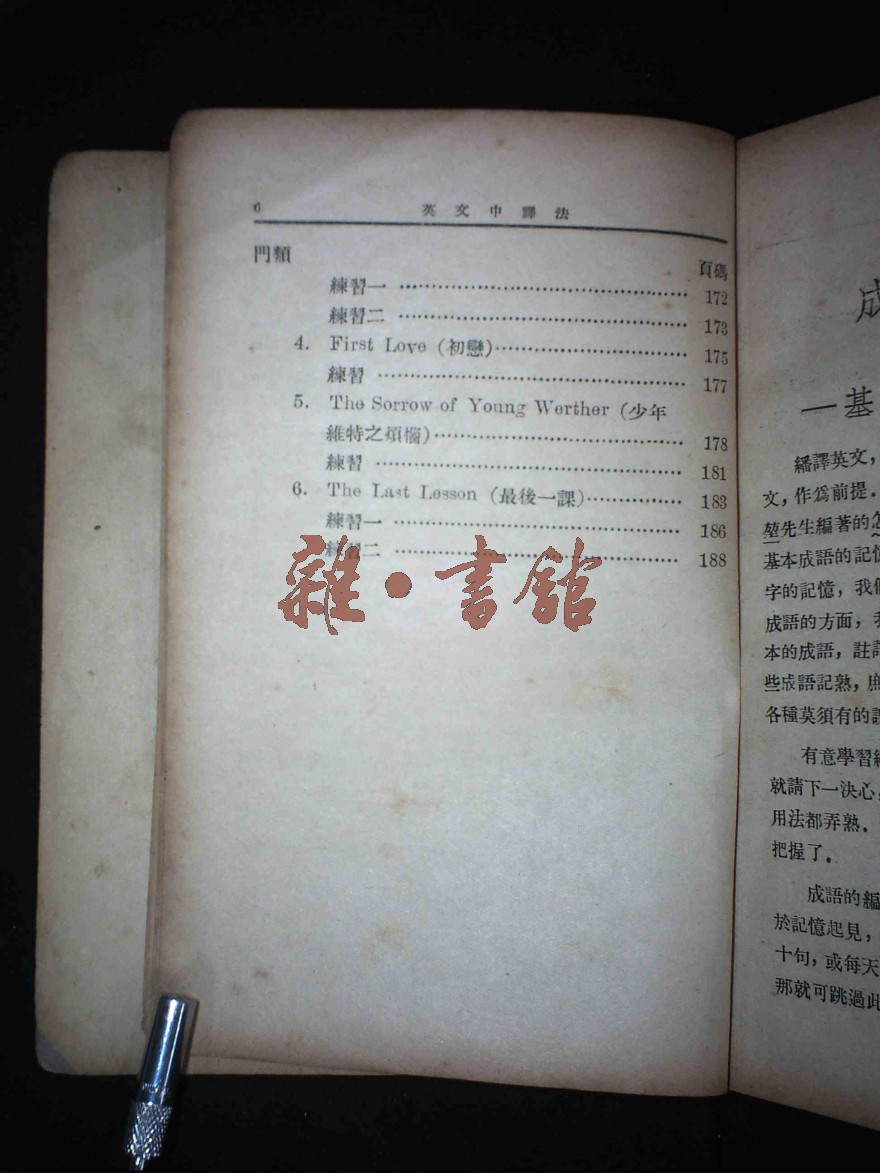 6
英文中譯法
門類
頁碼
練習一 172
練習二 173
4. First Love (初戀) 175
練習 177
5. The Sorrow of Young Werther (少年
維特之煩惱) 178
練習 181
6. The Last Lesson (最後一課) 183
練習一 186
練習二 188
雜·書館
成
一 基
繙譯英文,
文,作爲前提.
先生編著的怎
基本成語的記憶
字的記憶,我們
成語的方面,我
本的成語,註
些成語記熟,庶
各種莫須有的
有意學習
就請下一決心,
用法都弄熟.
把握了.
成語的編
於記憶起見,
十句,或每天
那就可跳過此